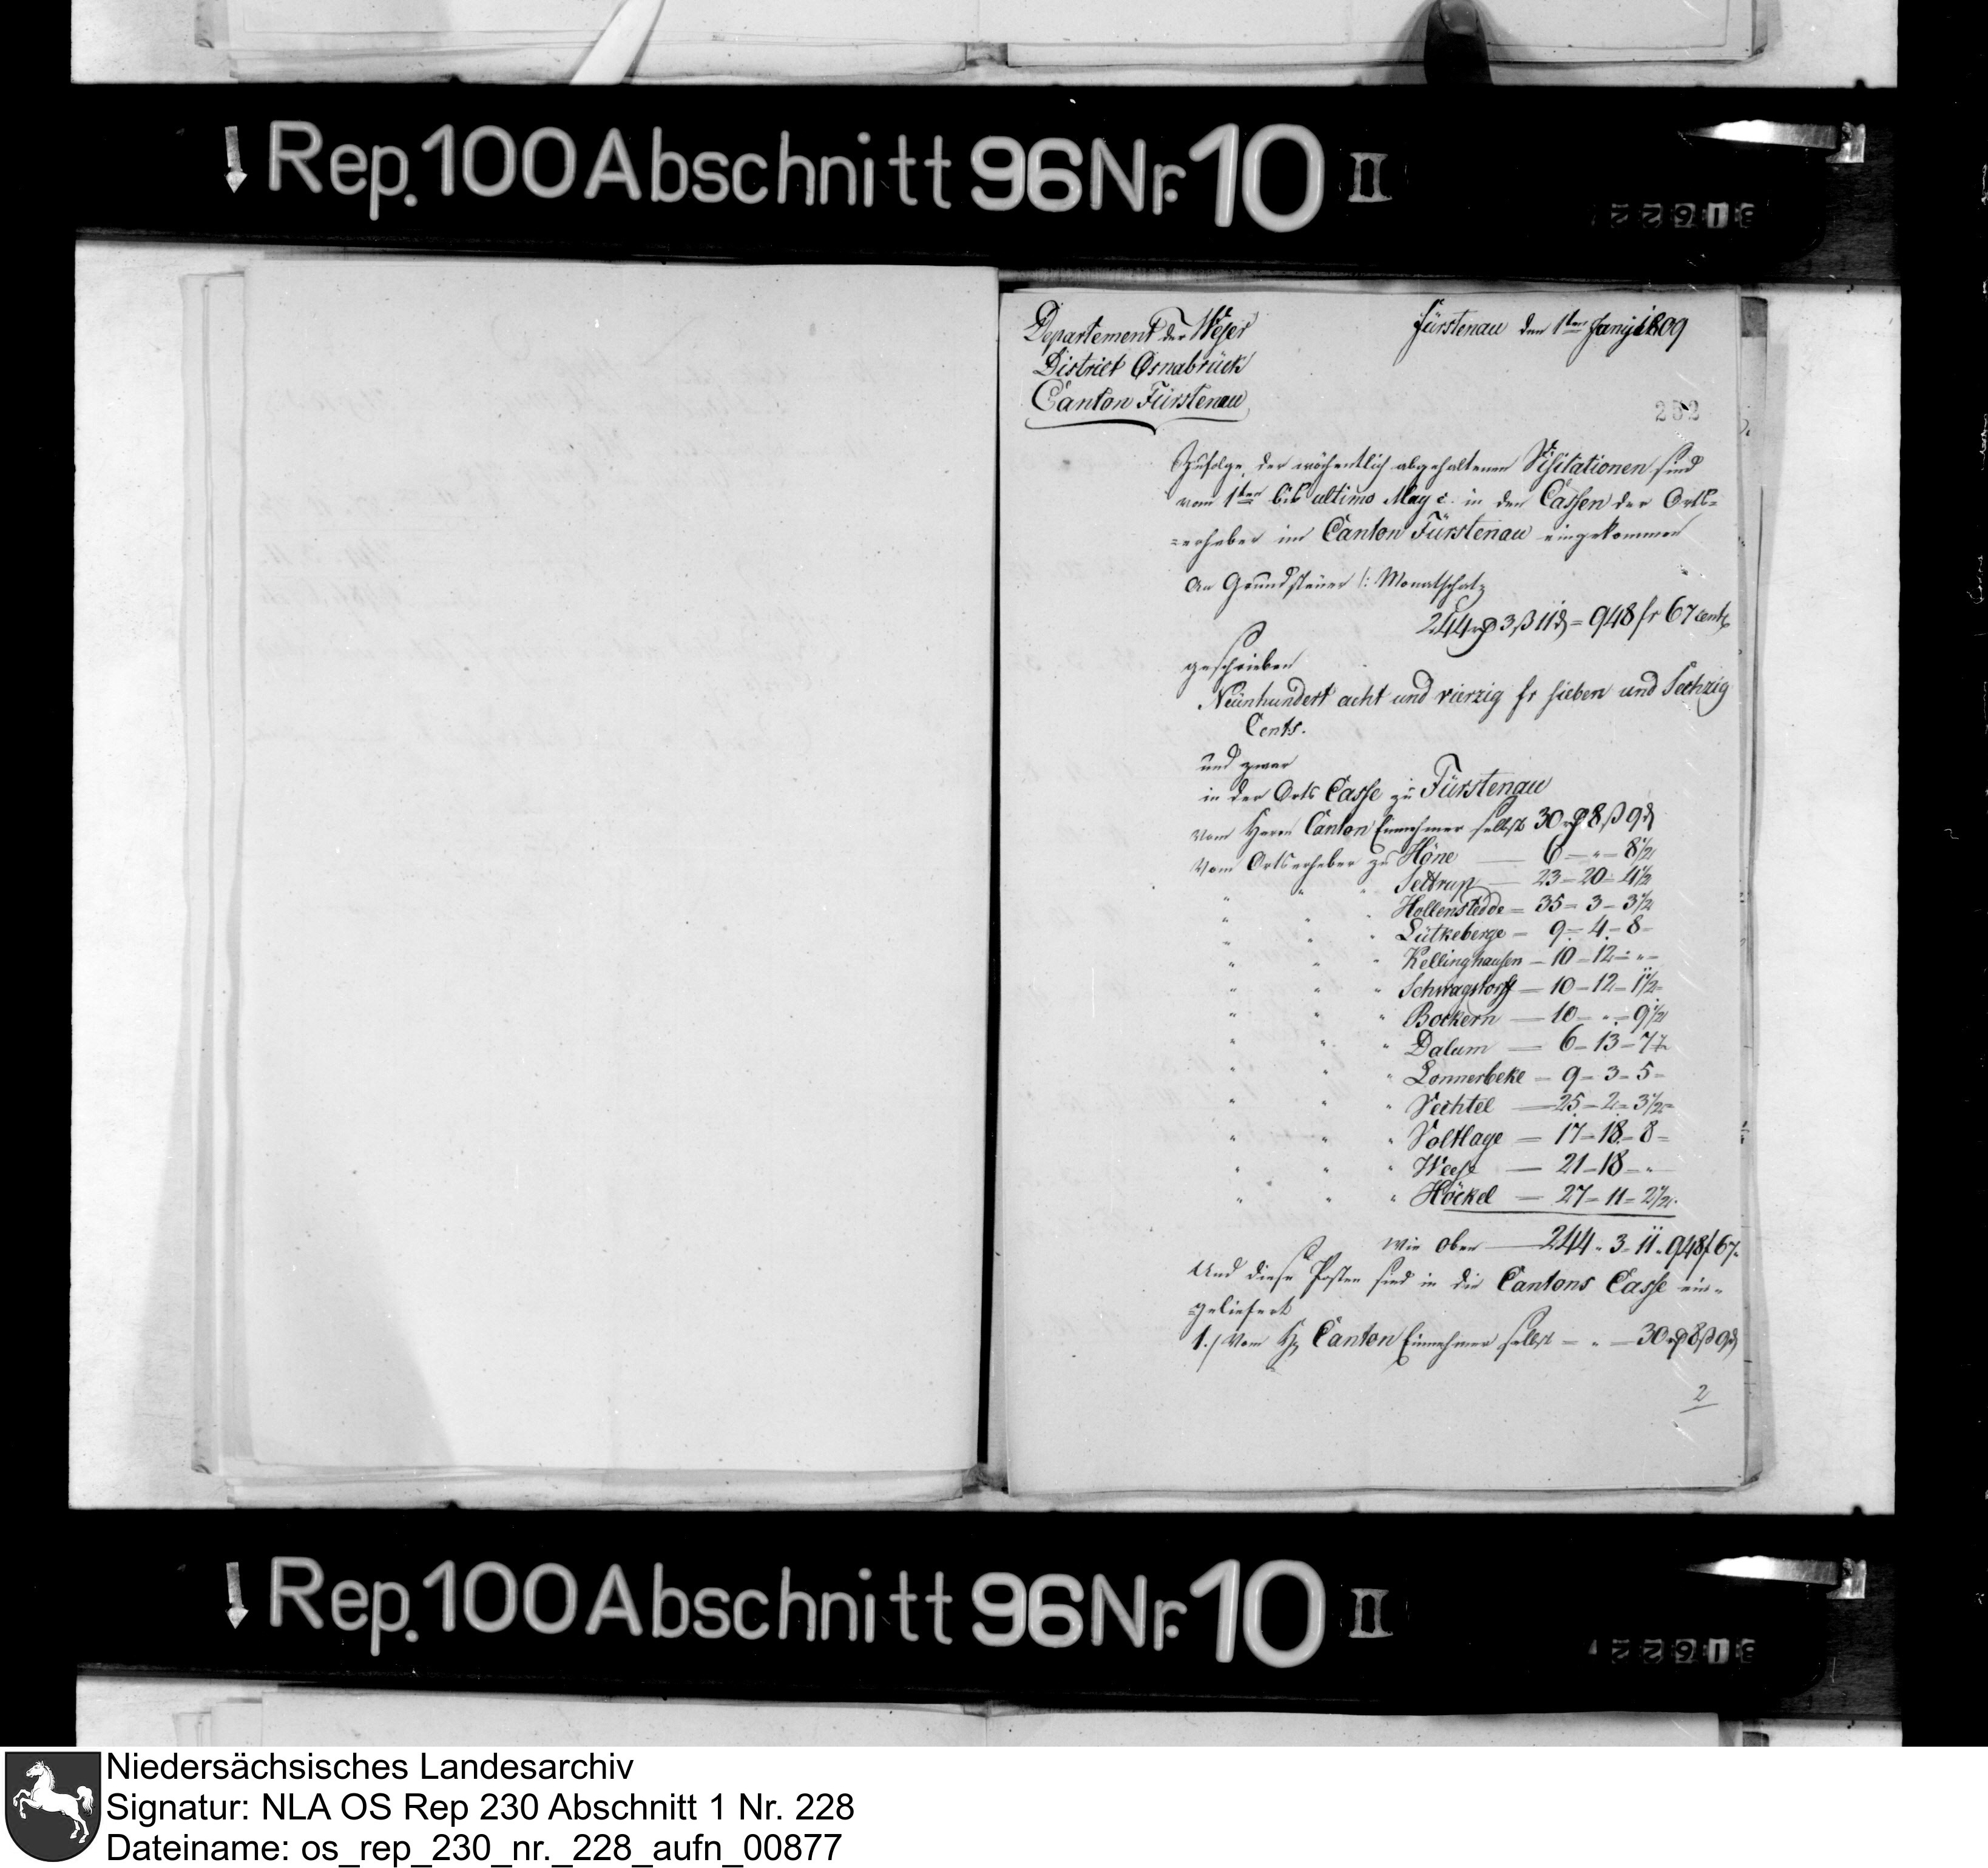 Rep. 100 Abschnitt 96 Nr. 10 II
Departement der Weser
District Osnabrück
Canton Fürstenau
Fürstenau den 1ten Junij 1809
252
Zufolge der wöchentlich abgehaltenen Visitationen sind
vom 1ten bis ultimo May c. in den Cassen der Orts-
=erheber im Canton Fürstenau eingekommen
An Grundsteuer /: Monatschatz
244 rthl 3 ß 11 d = 948 fr 67 cents
geschrieben
Neünhundert acht und vierzig fr sieben und Sechzig
Cents.
und zwar
in der Orts Casse zu Fürstenau
vom Herrn Canton Einnehmer selbst 30 rthl 8 ß 9 d
Vom Ortserheber zu Höne — 6 — " — 8 1/2
" " " Settrup — 23 — 20 — 4 1/2
" " " Hollenstedde — 35 — 3 — 3 1/2
" " " Lütkeberge — 9 — 4 — 8 —
" " " Kellinghausen — 10 — 12 — " —
" " " Schwagstorff — 10 — 12 — 11 1/2
" " " Bockern — 10 — " — 9 1/2
" " " Dalum — 6 — 13 — 7 1/2
" " " Lonnerbeke — 9 — 3 — 5 —
" " " Vechtel — 25 — 2 — 3 1/2
" " " Voltlage — 17 — 18 — 8 —
" " " Weese — 21 — 18 — " —
" " " Höckel — 27 — 11 — 2 1/2
Wie oben — 244 " 3 " 11 " 948 f 67
Und diese Posten sind in die Cantons Casse ein-
=geliefert
1.) Vom H. Canton Einnehmer selbst — " — 30 rthl 8 ß 9 d
2
Rep. 100 Abschnitt 96 Nr. 10 II
Niedersächsisches Landesarchiv
Signatur: NLA OS Rep 230 Abschnitt 1 Nr. 228
Dateiname: os_rep_230_nr._228_aufn_00877